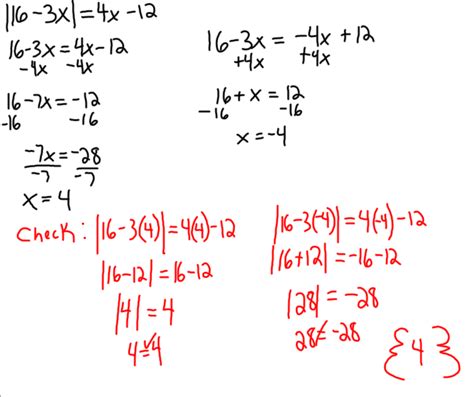 |16-3x|=4x-12
16-3x=4x-12
-4x -4x
16-7x=-12
-16 -16
-7x=-28
-7 -7
x=4
16-3x=-4x+12
+4x +4x
16+x=12
-16 -16
x=-4
Check: |16-3(4)|=4(4)-12
|16-12|=16-12
|4|=4
4=4 ✓
|16-3(-4)|=4(-4)-12
|16+12|=-16-12
|28|=-28
28≠-28
{4}